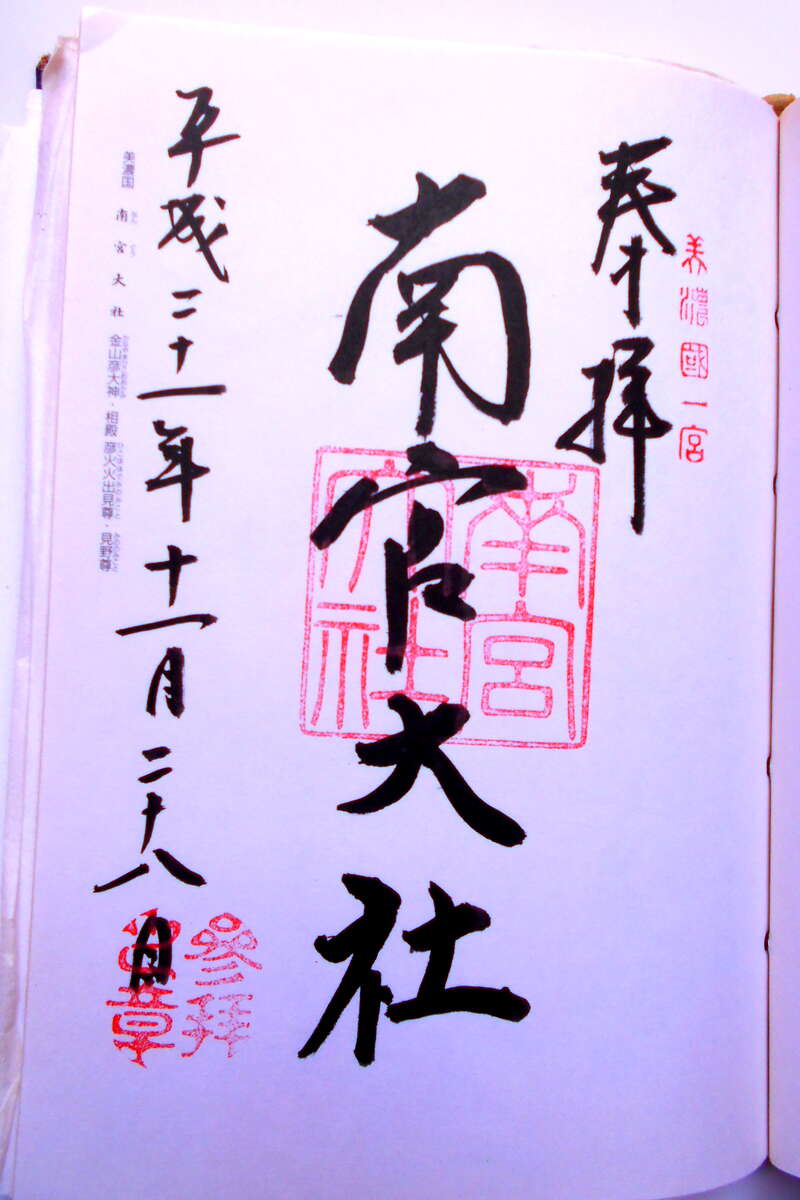 美濃國一宮
奉拝
南宮大社
南宮
大社
平成二十一年十一月二十八日
參拜
章
美濃国 南宮大社 金山彦大神・相殿 彦火火出見尊・見野尊